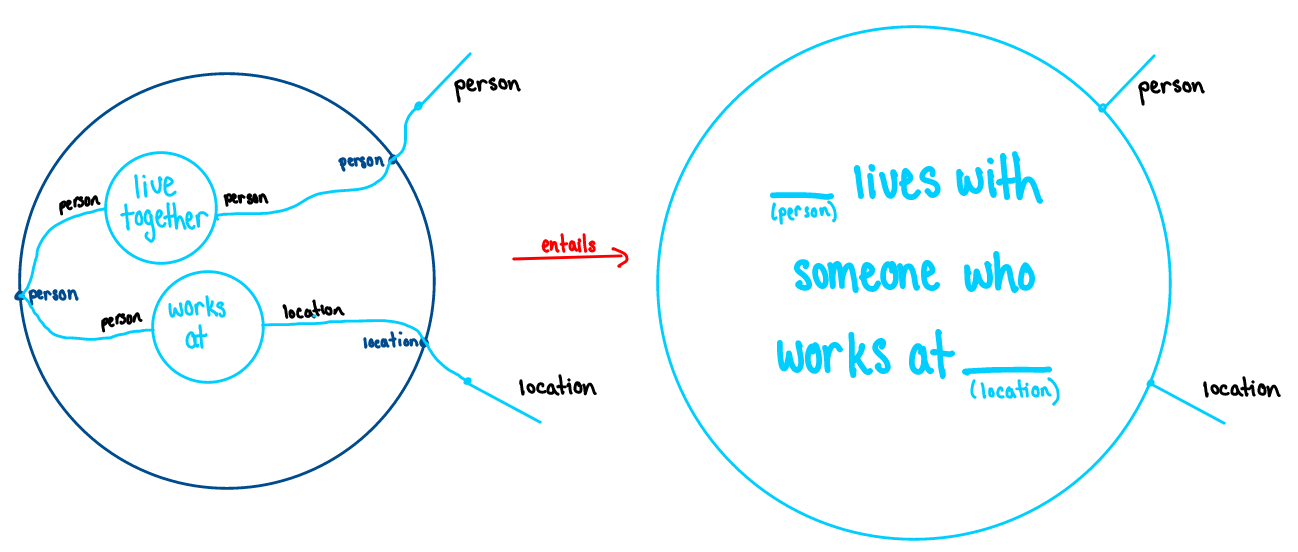 person
person
live
together
person
person
person
person
works
at
location
location
location
entails
person
lives with
(person)
someone who
works at
(location)
location